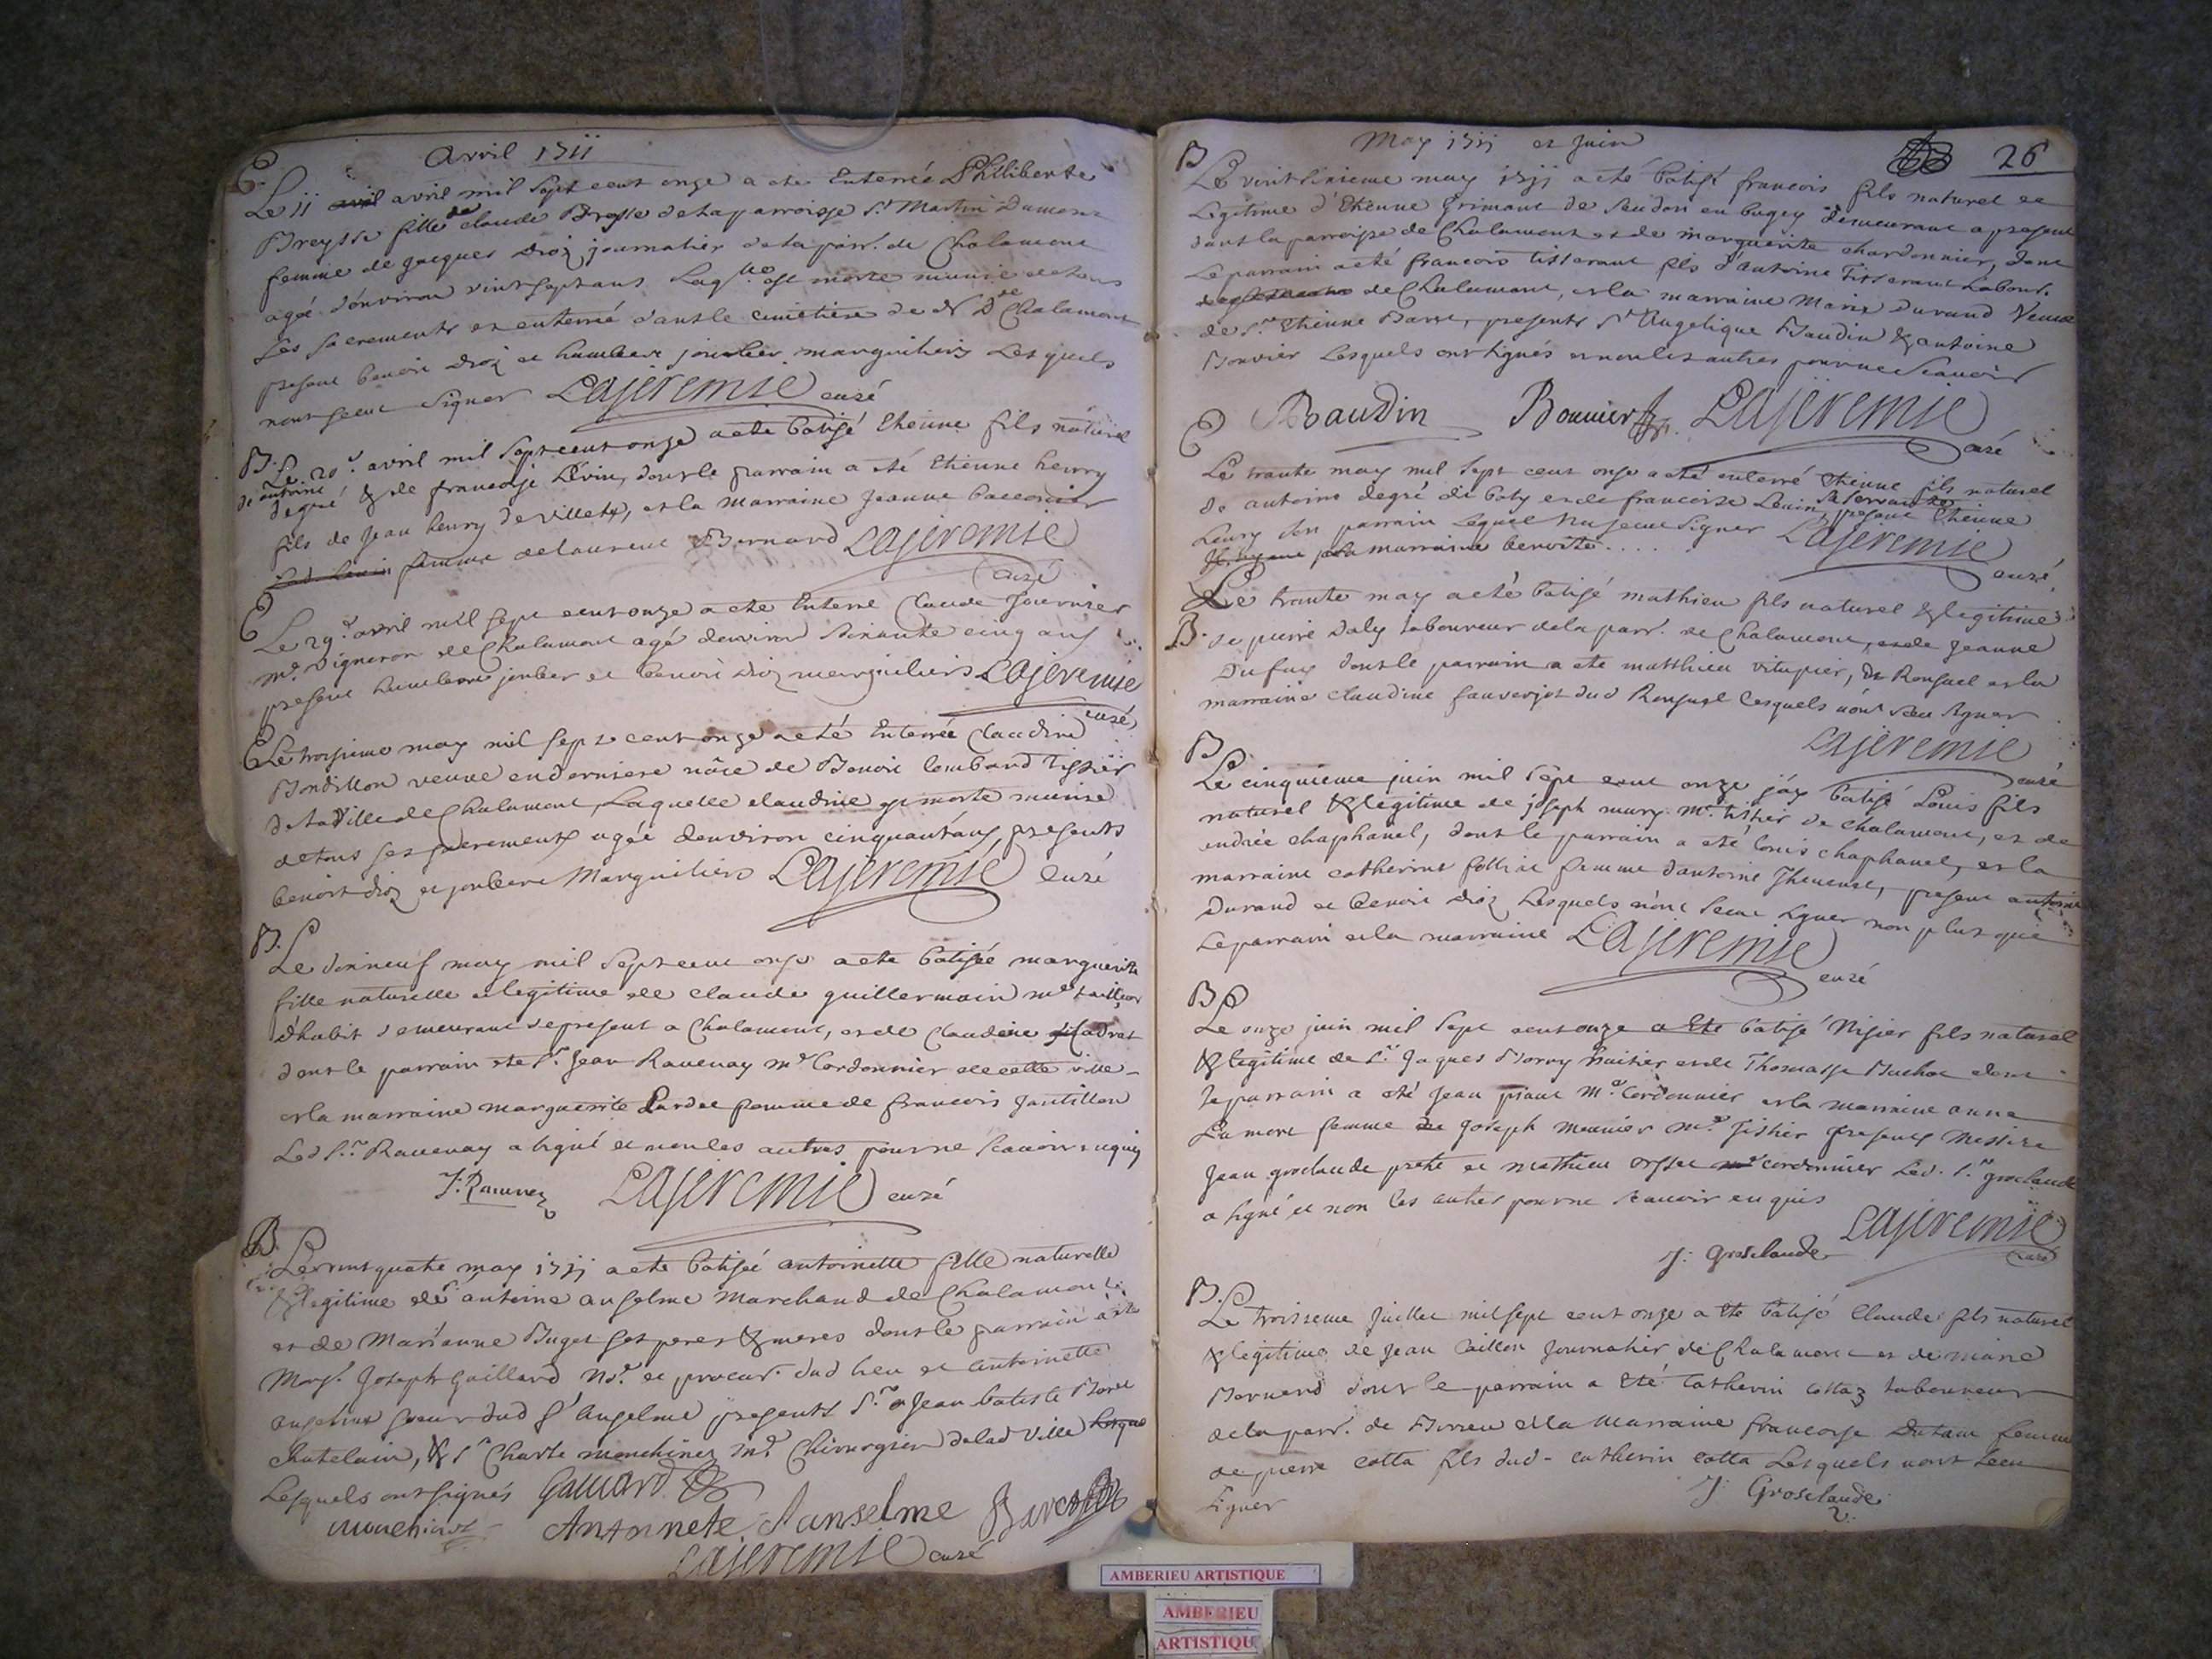 Avril 1711
E.
Le 11 avril mil sept cent onze a ete Enterrée Philliberte
Breysse fille de claude Brosse de la parroisse St Martin Dumont
femme de jacques Droz journalier de la parr. de Chalamont
agée d'environ vint sept ans Laqlle est morte munie de tous
Les sacrements et enterrée dans le cimetiere de de Chalamont
present benoit Droz et humbert joubier marguilliers Lesquels
n'ont sceu signer Lajeremie curé
B. Le 20e. avril mil sept cent onze a ete batisé Etienne fils naturel
d'antoine degré & de francoise Levin, dont le parrain a eté Etienne henry
fils de jean henry de villette, et la marraine jeanne
femme de laurent Bernard Lajeremie
curé
E
Le 29e. avril mil sept cent onze a ete Enterré Claude fournier
me. vigneron de Chalamont agé denviron soixante cinq ans
present humbert joubier et benoit Droz marguiliers Lajeremie
curé
E Le troisieme may mil sept cent onze a eté Enterrée Claudine
Bondillon veuve en derniere nôce de Benoit lombard tissier
de la ville de Chalamont, Laquelle claudine est morte munise
de tous ses sacrements agée denviron cinquant'ans, presents
benoit droz et joubert Marguiliers Lajeremie Curé
B.
Le dixneuf may mil sept cent onze a ete batisée marguerite
fille naturelle et legitime de claude guillermain me tailleur
d'habit demeurant de present a Chalamont, et de Claudine
dont le parrain ete Sr. Jean Ravenay me Cordonnier de cette ville
et la marraine marguerite femme de francois jantillon
Led Sr. Ravenay a signé et non les autres pour ne scavoir enquis
J. Ravenez Lajeremie curé
B.
Le vint quatre may 1711 a ete batisée antoinette fille naturelle
& legitime de Sr antoine anselme Marchand de Chalamont
et de Marianne Buget ses peres & meres dont le parrain a ete
Joseph gaillard No.re et procur. dud lieu et antoinette
anselme soeur dud Sr anselme presents Sr. Jean batiste
chatelain, & Sr Charle monchinez me Chirurgien de lad ville
Lesquels ont signés Gaillard
monchinez Antoinete danselme
Lajeremie curé
May 1711 et juin
26
B
Le vint sixieme may 1711 a eté batisé francois fils naturel et
Legitime d'Etienne Grimant de en bugey demeurant a present
dans la parroisse de Chalamont et de marguerite chardonnier, dont
Le parrain a eté francois tisserant fils d'antoine Tisserant Labour.
de Chalamont, et la marraine Marie Durand Veuve
de Sr. Etienne Barre, presents Sr Angelique Baudin & antoine
Bouvier Lesquels ont signés et non les autres pour ne scavoir
Baudin Bouvier Lajeremie
curé
E
Le trante may mil sept cent onze a eté enterré Etienne fils naturel
de antoine degré de baty et de francoise Levin, present Etienne
henry son parrain Lequel na sceu signer Lajeremie
marraine benoite....
curé
B.
Le trante may a eté batisé mathieu fils naturel & legitime
de pierre Daly laboureur de la parr. de Chalamont, et de jeanne
Dufay dont le parrain a ete matthieu vitupier, de Ronzuel et la
marraine claudine sauverjot dud Ronzuel lesquels n'ont sceu signer
Lajeremie
curé
B
Le cinquieme juin mil sept cent onze j'ay batisé Louis fils
naturel & legitime de joseph mury me. tissier de chalamont, et de
andrée chaphanel, dont le parrain a eté louis chaphanel, et la
marraine catherine femme d'antoine Thevenet, present antoine
Durand et benoit Droz Lesquels n'ont sceu signer non plus que
Le parrain et la marraine Lajeremie
curé
B
Le onze juin mil sept cent onze a eté batisé Nisier fils naturel
& legitime de Sr. Jaques Morry huisier et de Thomasse Buchoc dont
le parrain a eté jean me. Cordonnier et la marraine anne
Lamore femme de joseph meunier me. tissier presents Messire
jean groclaude pretre et mathieu cordonnier Led. Sr. groclaude
a signé et non les autres pour ne scavoir enquis
Lajeremie
curé
J. Grosclaude
B.
Le troisieme juillet mil sept cent onze a ete batisé Claude fils naturel
& legitime de jean Caillon journalier de Chalamont et de marie
Bernard dont le parrain a eté Catherin cottaz laboureur
de la parr. de et la Marraine francoise Dutant femme
de pierre cotta fils dud. catherin cotta Lesquels n'ont sceu
signer
J. Grosclaude
AMBERIEU ARTISTIQUE
AMBERIEU
ARTISTIQU